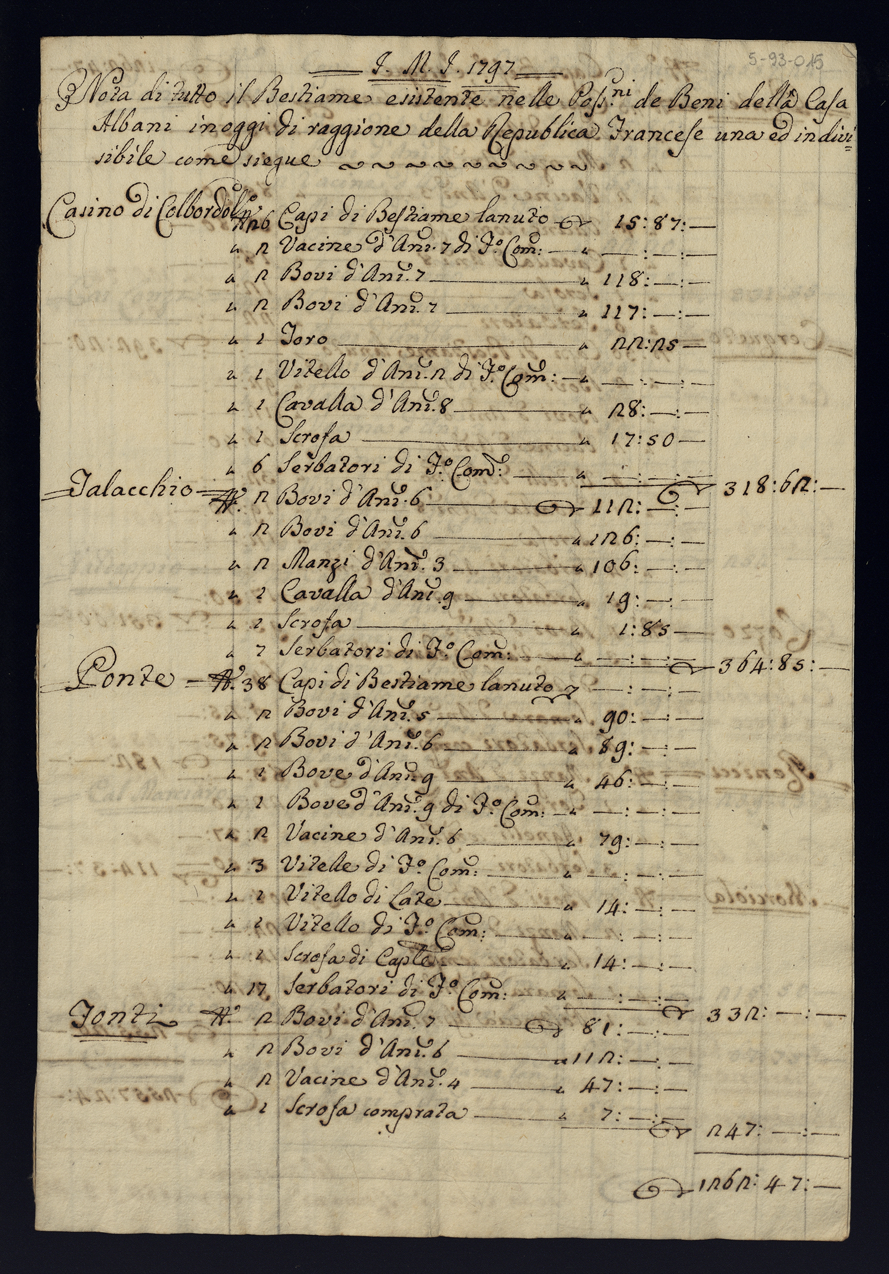 5-93-015
J. M. J. 1797
Nota di tutto il Bestiame esistente nelle Poss.ni de Beni della Casa
Albani in oggi di raggione della Republica Francese una ed indivi=
sibile come siegue
Casino di Colbordolo N.° 26 Capi di Bestiame lanuto 15:87:—
" 2 Vacine d'Ani. 7 di F.° Com: " —:—:—
" 2 Bovi d'Ani. 7 " 118:—:—
" 2 Bovi d'Ani. 7 " 117:—:—
" 1 Toro " 22:25—
" 1 Vitello d'Ani. 2 di F.° Com: " —:—:—
" 1 Cavalla d'Ani. 8 " 28:—:—
" 1 Scrofa " 17:50—
" 6 Serbatori di F.° Com: " —:—:— 318:62:—
Talacchio N.° 2 Bovi d'Ani. 6 112:—:—
" 2 Bovi d'Ani. 6 " 126:—:—
" 2 Manzi d'Ani. 3 " 106:—:—
" 1 Cavalla d'Ani. 9 " 19:—:—
" 1 Scrofa " 1:85—
" 7 Serbatori di F.° Com: " —:—:— 364:85:—
Ponte N.° 38 Capi di Bestiame lanuto —:—:—
" 2 Bovi d'Ani. 5 " 90:—:—
" 2 Bovi d'Ani. 6 " 89:—:—
" 1 Bove d'Ani. 9 " 46:—:—
" 1 Bove d'Ani. 9 di F.° Com: " —:—:—
" 2 Vacine d'Ani. 6 " 79:—:—
" 3 Vitelle di F.° Com: " —:—:—
" 1 Vitello di Late " 14:—:—
" 1 Vitello di F.° Com: " —:—:—
" 1 Scrofa di Caple " 14:—:—
" 17 Serbatori di F.° Com: " —:—:— 332:—:—
Fonti N.° 2 Bovi d'Ani. 7 81:—:—
" 2 Bovi d'Ani. 6 " 112:—:—
" 2 Vacine d'Ani. 4 " 47:—:—
" 1 Scrofa comprata " 7:—:—
247:—:—
1262:47:—